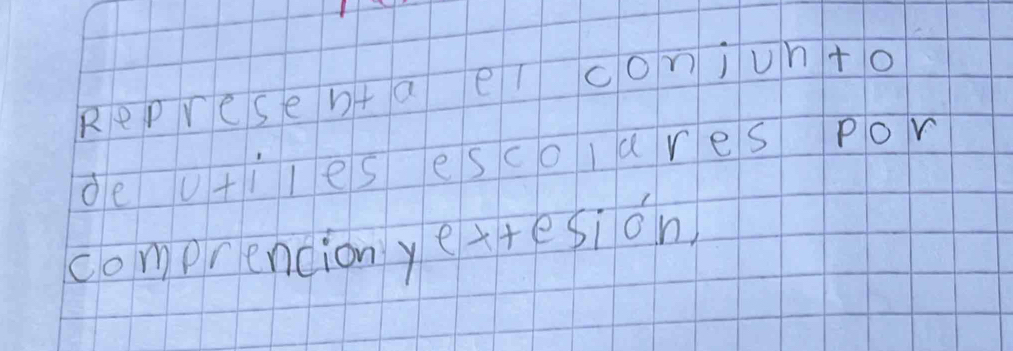 Representa el conjunto
de utiles escolares por
comprencion y extesión,